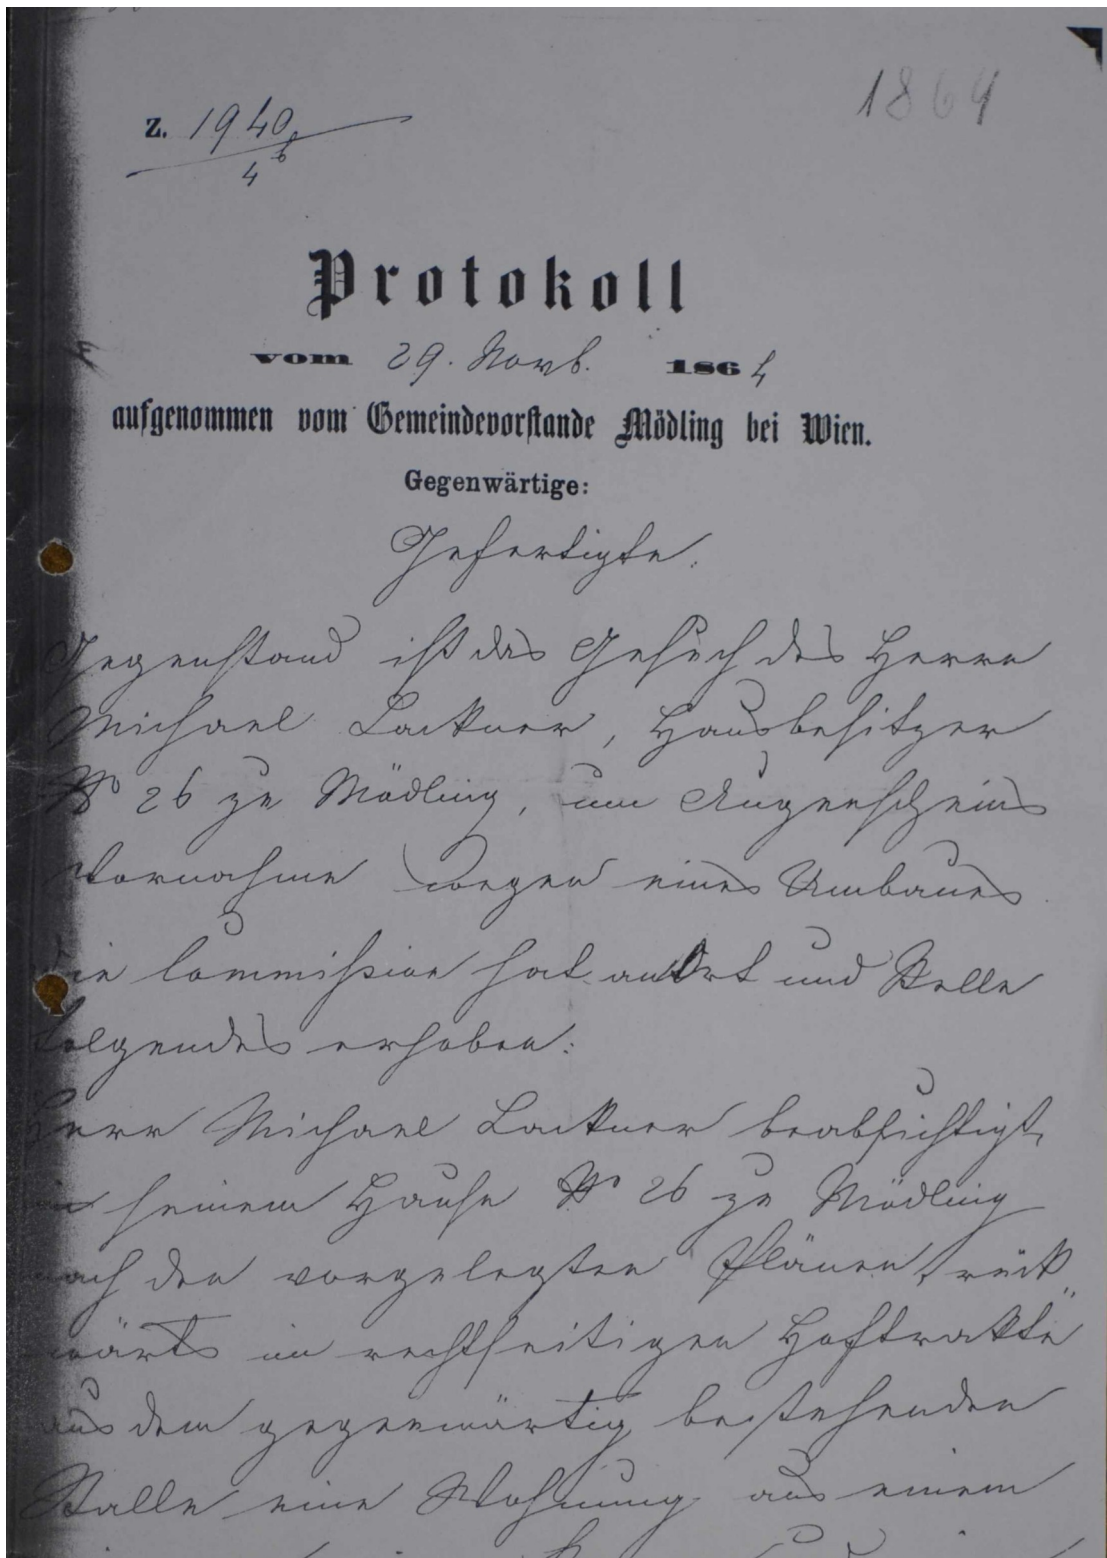 1864
Z. 1940
4 b
Protokoll
vom 29. Novb. 1864
aufgenommen vom Gemeindevorstande Mödling bei Wien.
Gegenwärtige:
Gefertigte.
Gegenstand ist das Gesuch des Herrn
Michael Lackner, Hausbesitzer
No 26 zu Mödling, um Augenscheins
Vornahme wegen eines Umbaues
Die Commission hat an Ort und Stelle
folgendes erhoben:
Herr Michael Lackner beabsichtigt,
in seinem Hause No 26 zu Mödling
nach den vorgelegten Plänen, rück
wärts im rechtseitigen Hoftrakte
aus dem gegenwärtig bestehenden
Stalle eine Wohnung aus einem